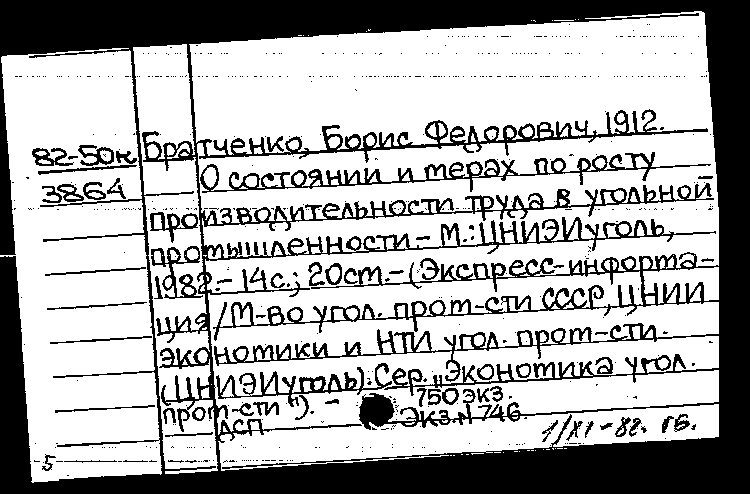 82-50к Братченко, Борис Федорович, 1912.
3864 О состоянии и мерах по росту
производительности труда в угольной
промышленности.- М.: ЦНИЭИуголь,
1982.- 14с.; 20см.- (Экспресс-информа-
ция/М-во угол. пром-сти СССР, ЦНИИ
экономики и НТИ угол. пром-сти.
(ЦНИЭИуголь). Сер. „Экономика угол.
пром-сти"). - 750экз.
ДСП. Экз.N 746.
1/XI-82. гб.
5